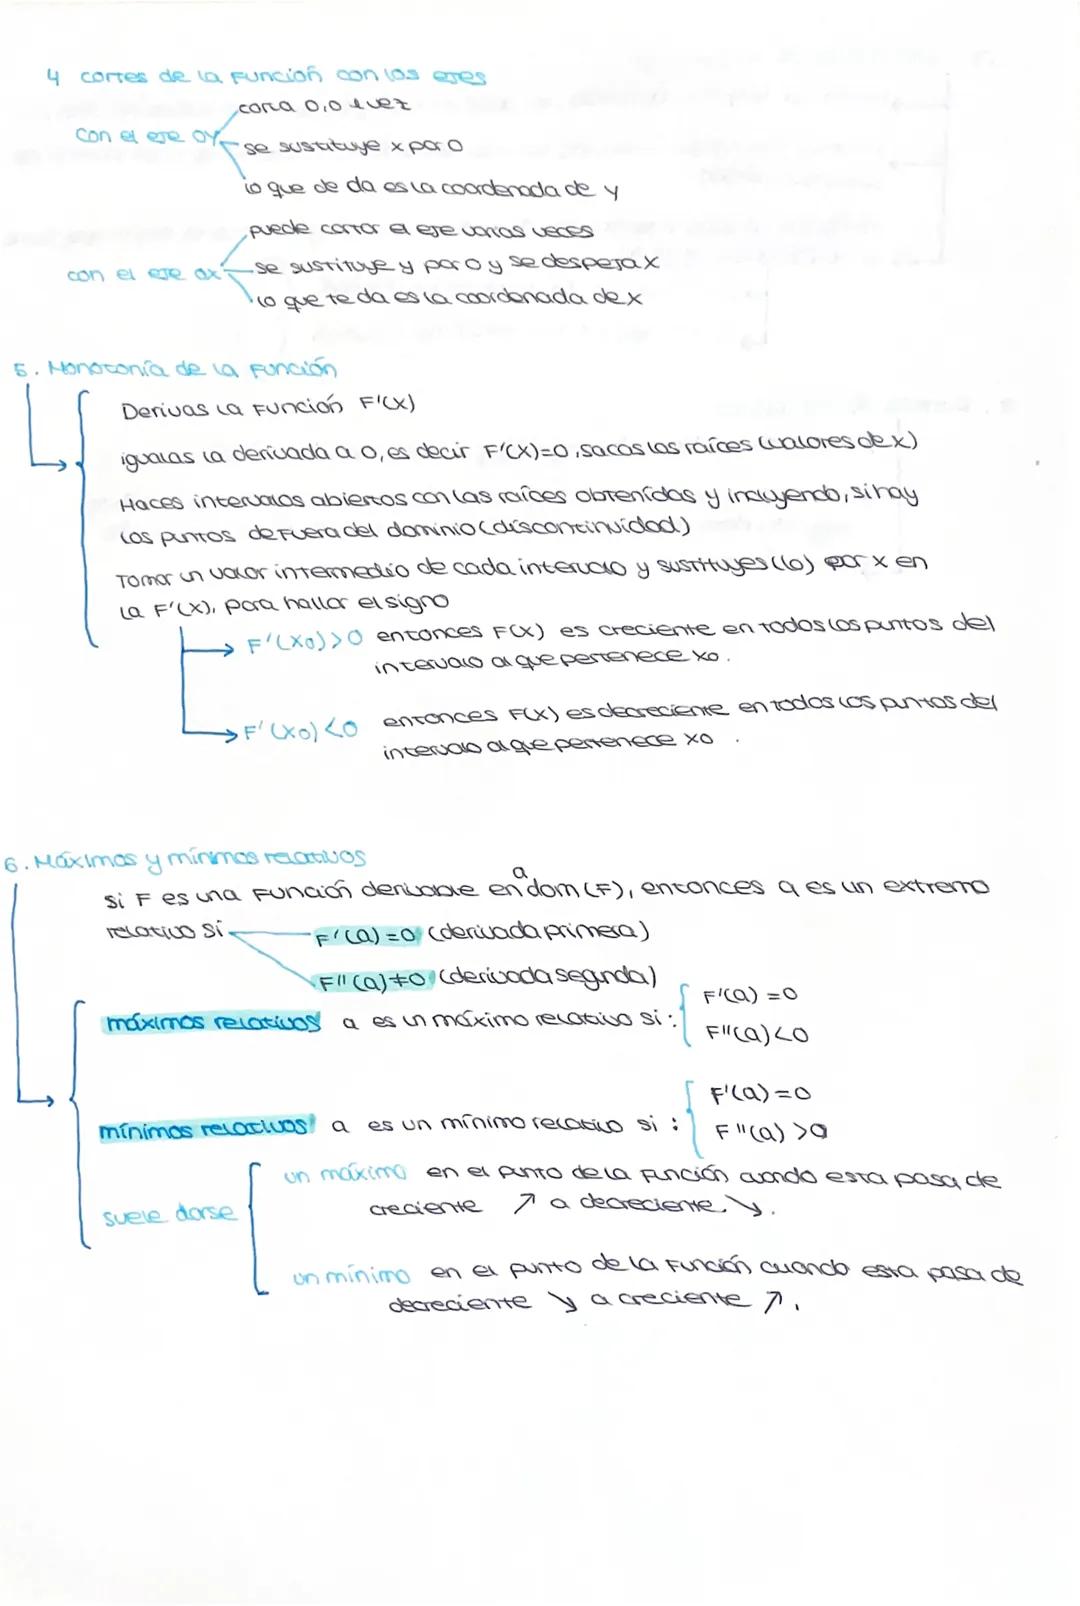 4 cortes de la función con los ejes
corta 0, o 1 vez
con el eje OY
se sustituye x por 0
lo que de da es la coordenada de y
puede cortar el eje varias veces
con el eje ox
se sustituye y por 0 y se despeja x
lo que te da es la coordenada de x
5. Monotonía de la función
Derivas la función F'(x)
igualas la derivada a 0, es decir F'(x)=0, sacas las raíces (valores de x)
Haces intervalos abiertos con las raíces obtenidas y incluyendo, si hay
los puntos de fuera del dominio (discontinuidad)
Tomar un valor intermedio de cada intervalo y sustituyes (lo) por x en
la F'(x), para hallar el signo
F'(x0)>0 entonces F(x) es creciente en todos los puntos del
intervalo al que pertenece x0.
F'(x0)<0 entonces F(x) es decreciente en todos los puntos del
intervalo al que pertenece x0.
6. Máximos y mínimos relativos
a
si F es una función derivable en dom(F), entonces a es un extremo
relativo si
F'(a)=0 (derivada primera)
F''(a)≠0 (derivada segunda)
máximos relativos a es un máximo relativo si:
F'(a)=0
F''(a)<0
mínimos relativos a es un mínimo relativo si:
F'(a)=0
F''(a)>0
suele darse
un máximo en el punto de la función cuando esta pasa de
creciente ↗ a decreciente ↘.
un mínimo en el punto de la función cuando esta pasa de
decreciente ↘ a creciente ↗.